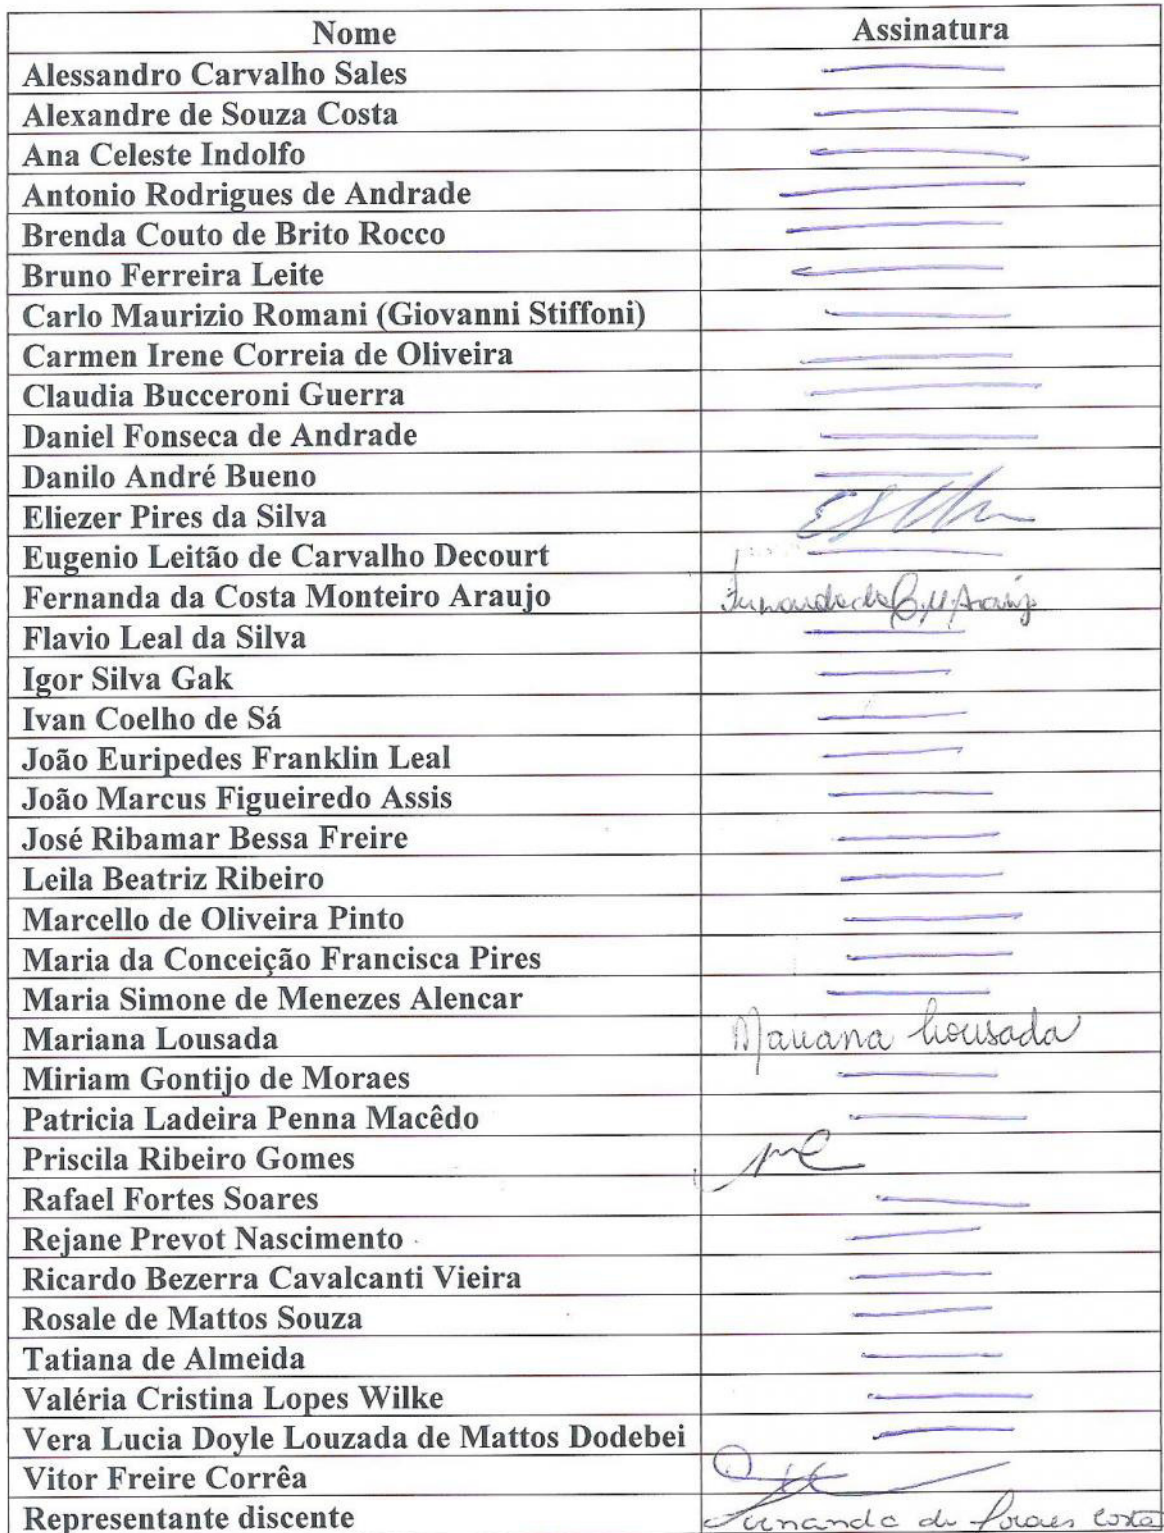 Nome Assinatura
Alessandro Carvalho Sales
Alexandre de Souza Costa
Ana Celeste Indolfo
Antonio Rodrigues de Andrade
Brenda Couto de Brito Rocco
Bruno Ferreira Leite
Carlo Maurizio Romani (Giovanni Stiffoni)
Carmen Irene Correia de Oliveira
Claudia Bucceroni Guerra
Daniel Fonseca de Andrade
Danilo André Bueno
Eliezer Pires da Silva
Eugenio Leitão de Carvalho Decourt
Fernanda da Costa Monteiro Araujo Fernanda da C. M. Araújo
Flavio Leal da Silva
Igor Silva Gak
Ivan Coelho de Sá
João Euripedes Franklin Leal
João Marcus Figueiredo Assis
José Ribamar Bessa Freire
Leila Beatriz Ribeiro
Marcello de Oliveira Pinto
Maria da Conceição Francisca Pires
Maria Simone de Menezes Alencar
Mariana Lousada Mariana Lousada
Miriam Gontijo de Moraes
Patricia Ladeira Penna Macêdo
Priscila Ribeiro Gomes
Rafael Fortes Soares
Rejane Prevot Nascimento
Ricardo Bezerra Cavalcanti Vieira
Rosale de Mattos Souza
Tatiana de Almeida
Valéria Cristina Lopes Wilke
Vera Lucia Doyle Louzada de Mattos Dodebei
Vitor Freire Corrêa
Representante discente Fernanda de costa